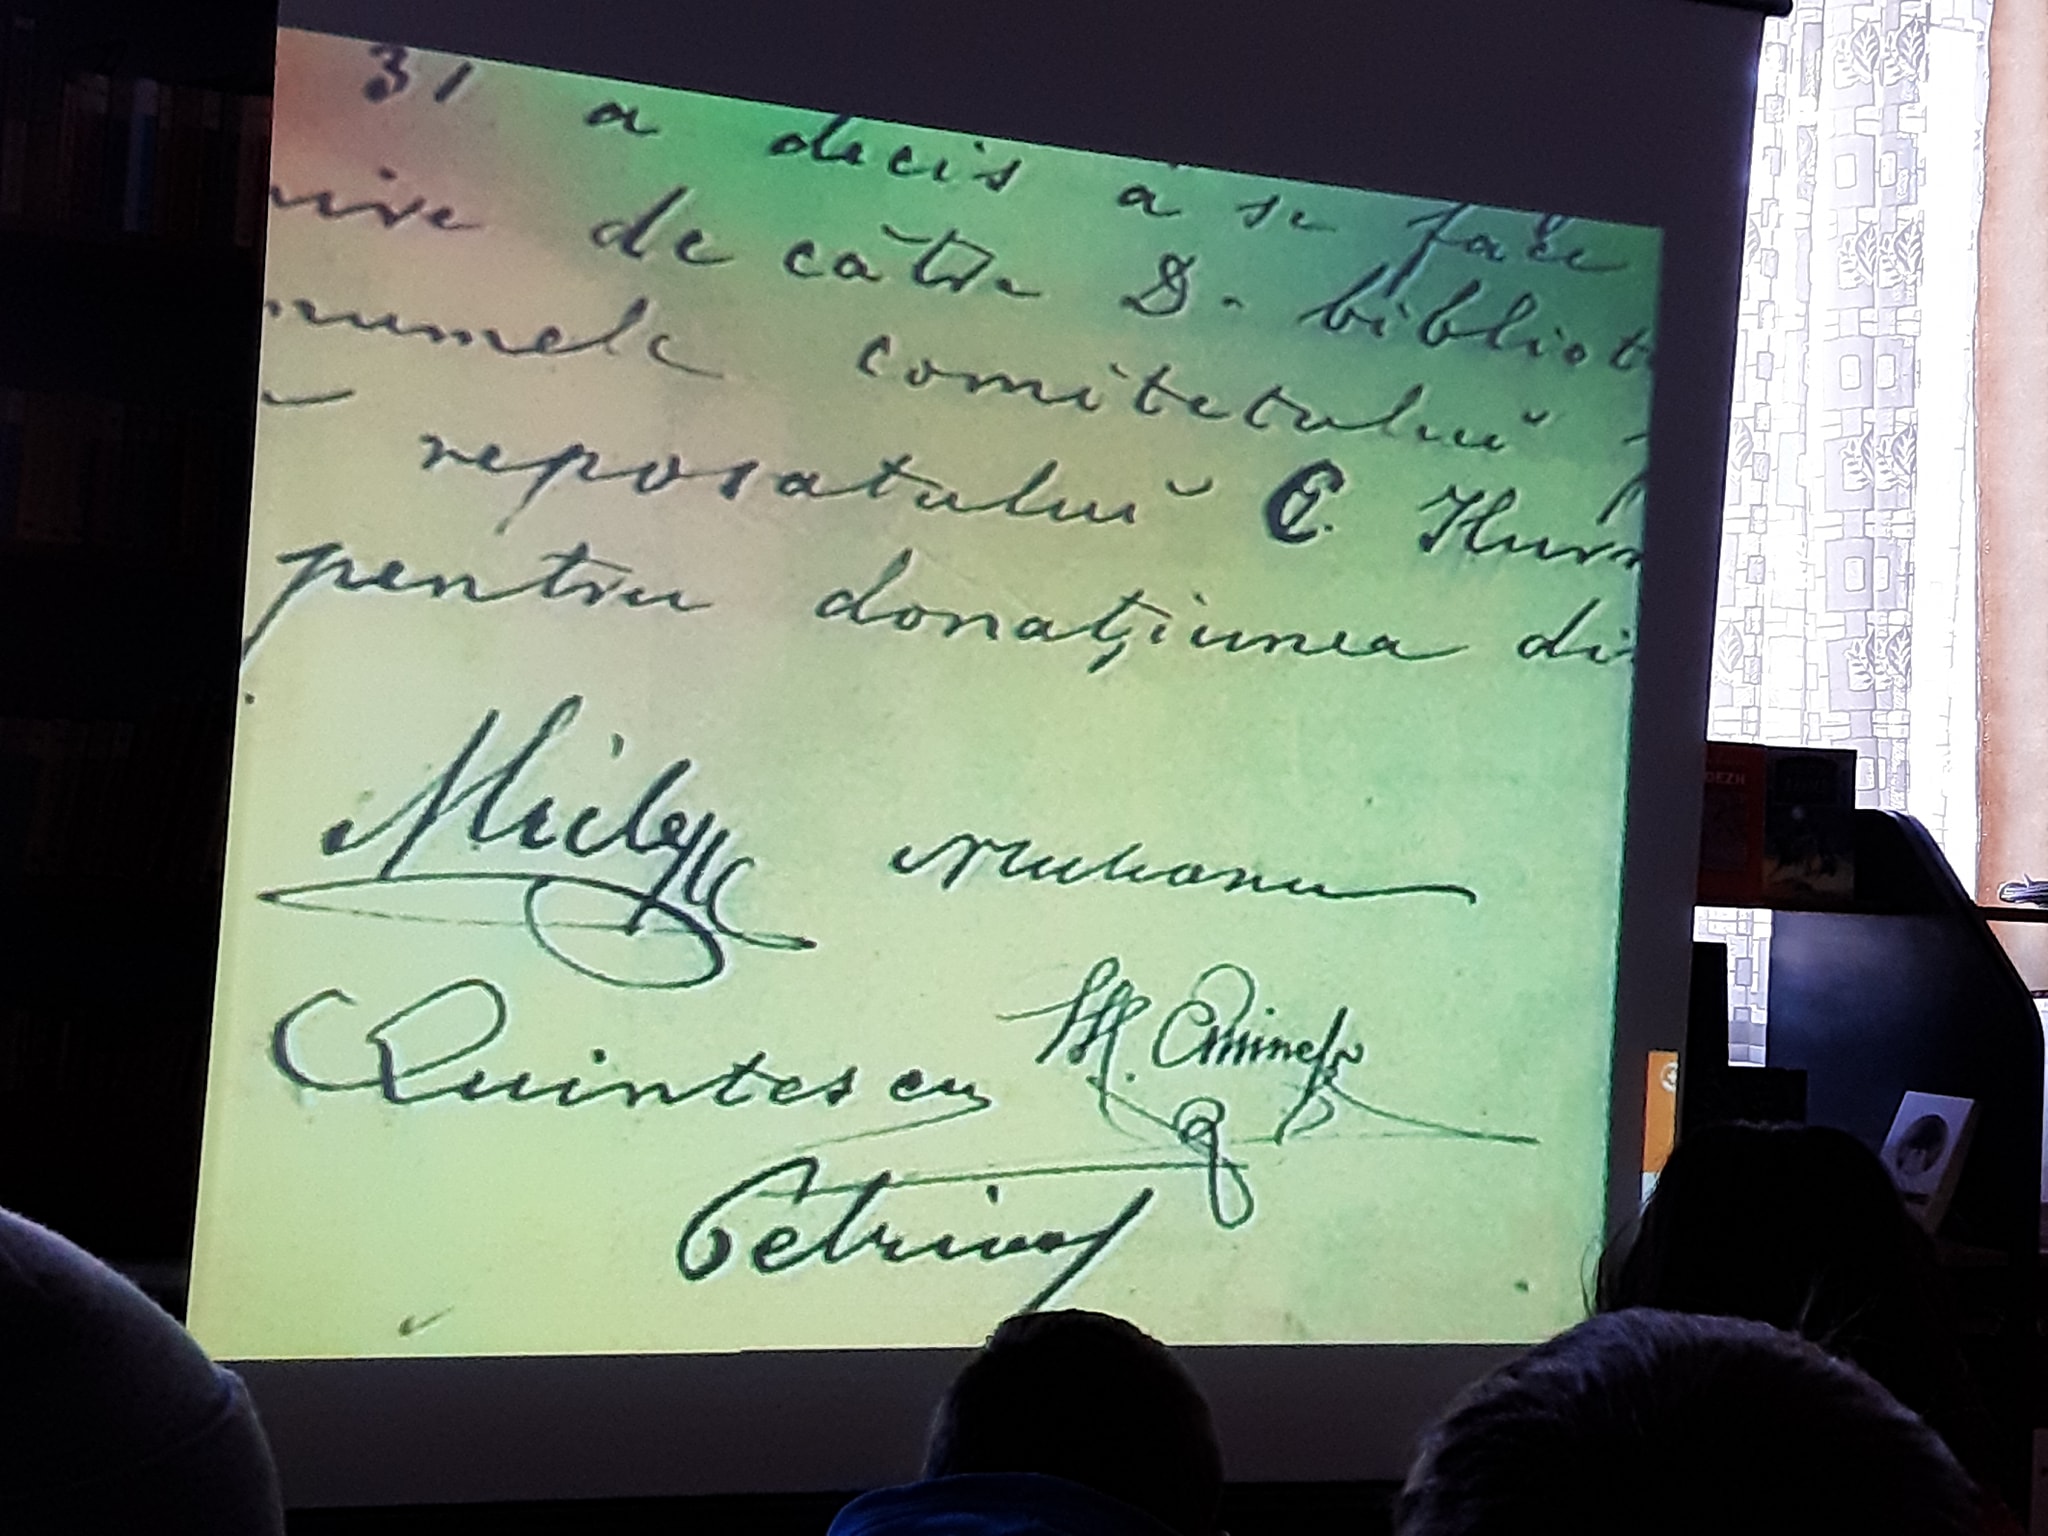 31 a decis a se face
uire de către D. bibliot
numele comitetuluĭ
reposatuluĭ E. Hurm
pentru donațiunea di
Micle
Quintescu M. Eminescu
Petrino
DEZH